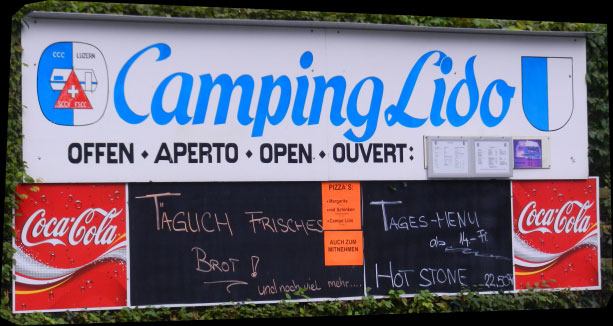 CCC LUZERN
SCCV FSCC
Camping Lido
OFFEN • APERTO • OPEN • OUVERT:
Coca-Cola
TÄGLICH FRISCHES
BROT!
und noch viel mehr....
PIZZA'S
• Margarita
• mit Schinken
• Campo Lido
AUCH ZUM
MITNEHMEN
TAGES-MENU
ab 14.- Fr
HOT STONE 22,50
Coca-Cola